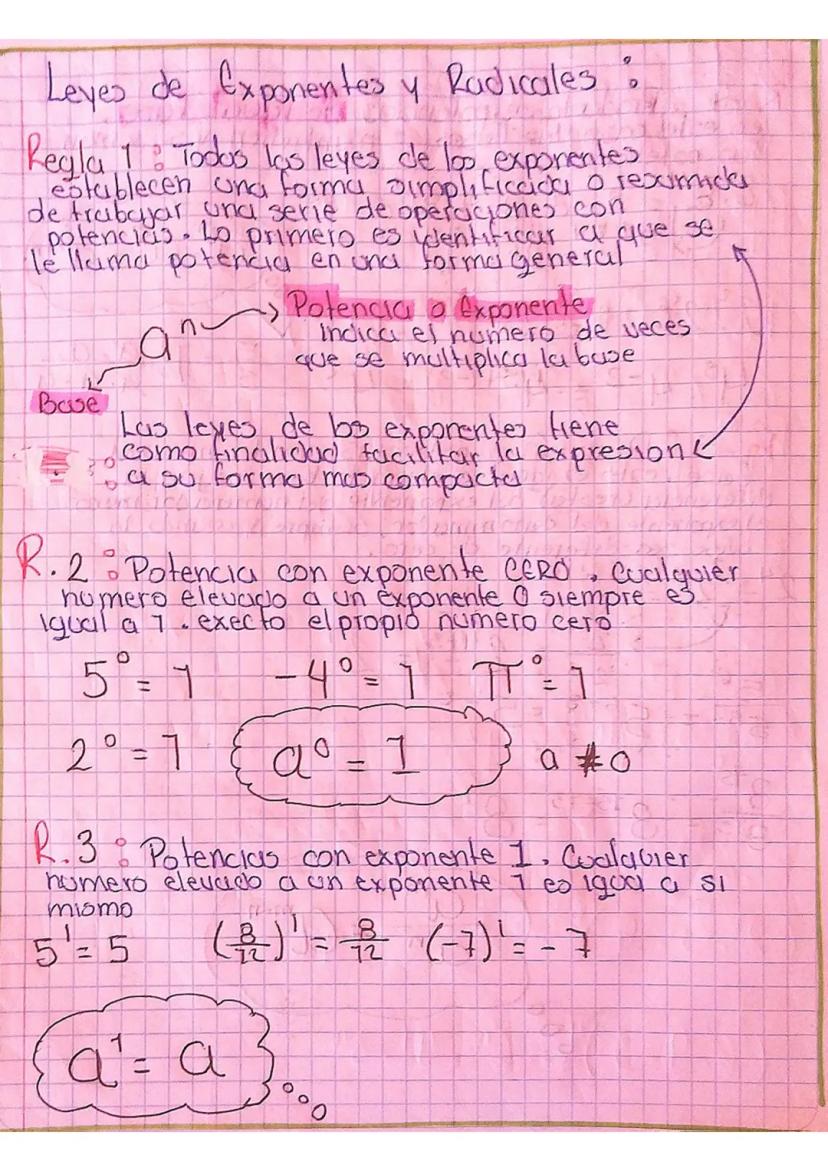 Leyes de Exponentes y Radicales :
Regla 1 : Todas las leyes de los exponentes
establecen una forma simplificada o resumida
de trabajar una serie de operaciones con
potencias. Lo primero es identificar a que se
le llama potencia en una forma general
aⁿ
Potencia o Exponente
indica el numero de veces
que se multiplica la base
Base
Las leyes de los exponentes tiene
como finalidad facilitar la expresion
a su forma mas compacta
R.2 : Potencia con exponente CERO. Cualquier
numero elevado a un exponente 0 siempre es
igual a 1. execto el propio numero cero
5⁰ = 1 -4⁰ = 1 π⁰ = 1
2⁰ = 1 a⁰ = 1 a ≠ 0
R.3 : Potencias con exponente 1. Cualquier
numero elevado a un exponente 1 es igual a si
mismo
5¹ = 5 (8/12)¹ = 8/12 (-7)¹ = -7
a¹ = a